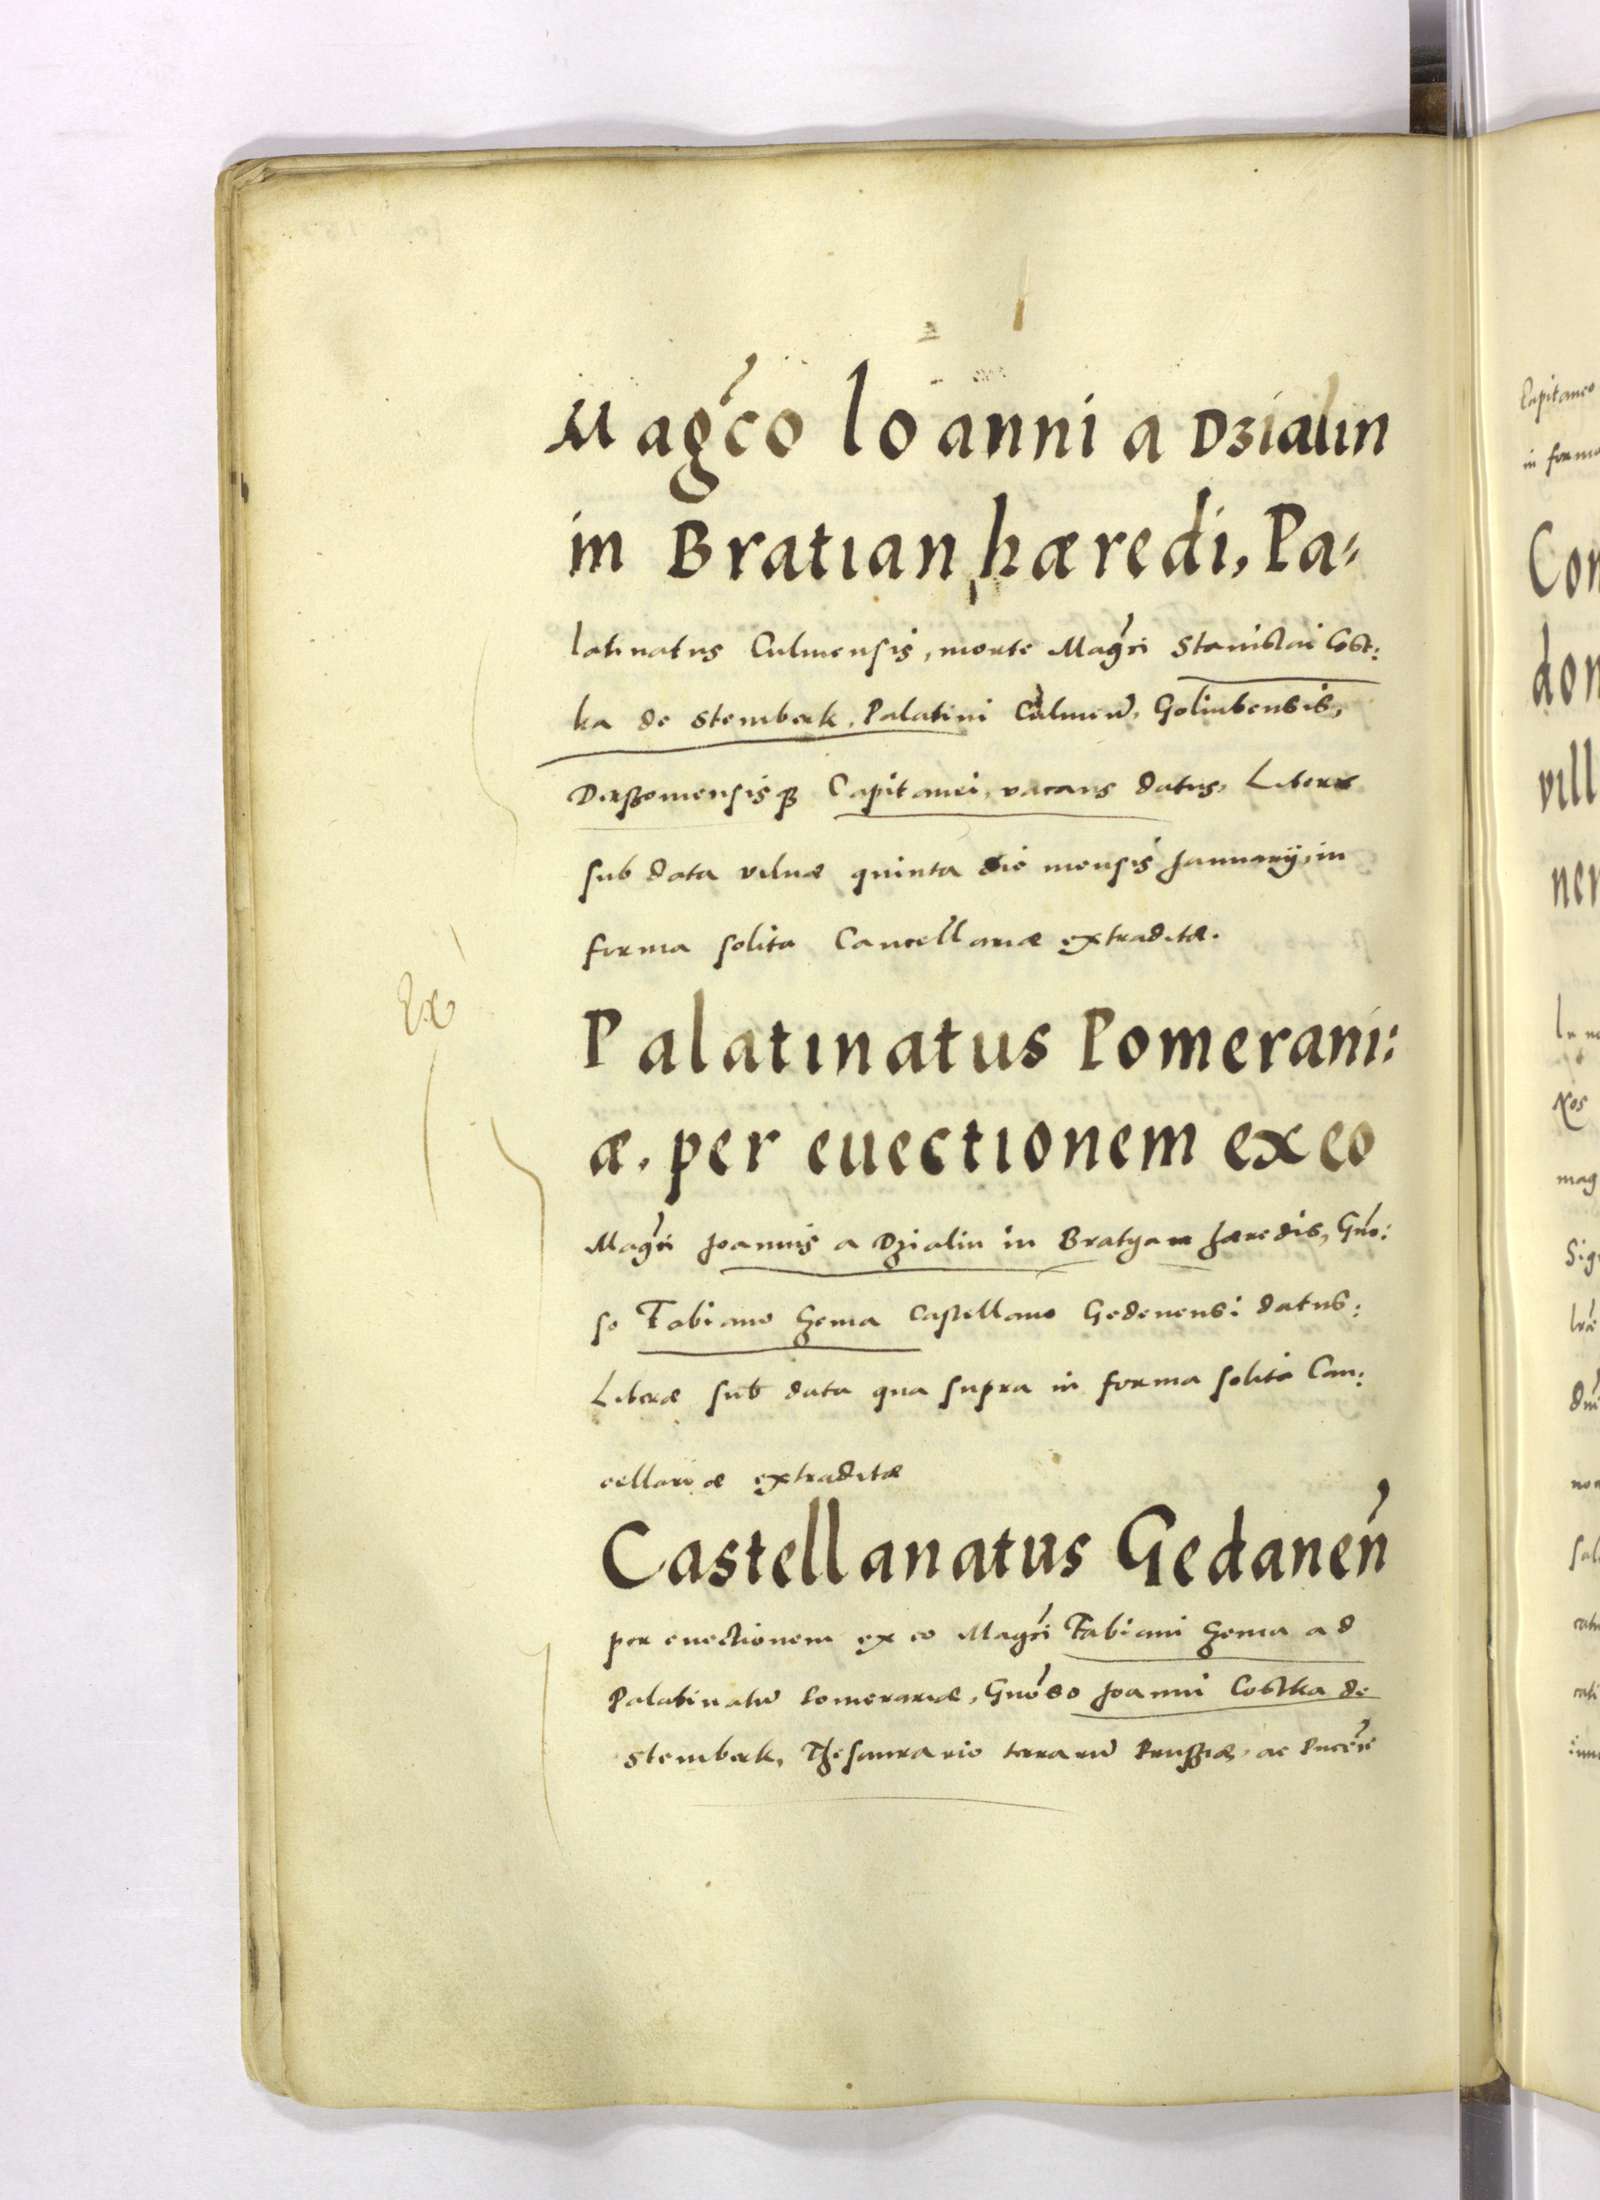 Mag͛co Ioanni a Dzialin
in Bratian hæredi, Pa-
latinatus Culmensis, morte Mag͛ci Stanislai Cost:
ka de Stemberk, Palatini Culmen̄, Goliubensis,
Dirssouiensisq3 Capitanei, vacans datus, Literæ
sub data Vilnæ quinta die mensis Januarij, in
forma solita Cancellariæ extraditæ.
Ex
Palatinatus Pomerani:
æ. per euectionem ex eo
Mag͛ci Joannis a Dzialin in Bratyan hæredis, Gn͛o:
so Fabiano Czema Castellano Gedenensi datus:
Literæ sub data qua supra in forma solita Can:
cellariæ extraditæ
Castellanatus Gedanen͛
per euectionem ex eo Mag͛ci Fabiani Czema ad
Palatinatū Pomeraniæ, Gn͛oso Joanni Costka de
Stemberk, Thesaurario terrarū Prussiæ, ac Pucen͛
Capitaneo
in forma
Con
don
vill
ner
In no
Nos
mag
Sig
lræ
dni
non
Sal